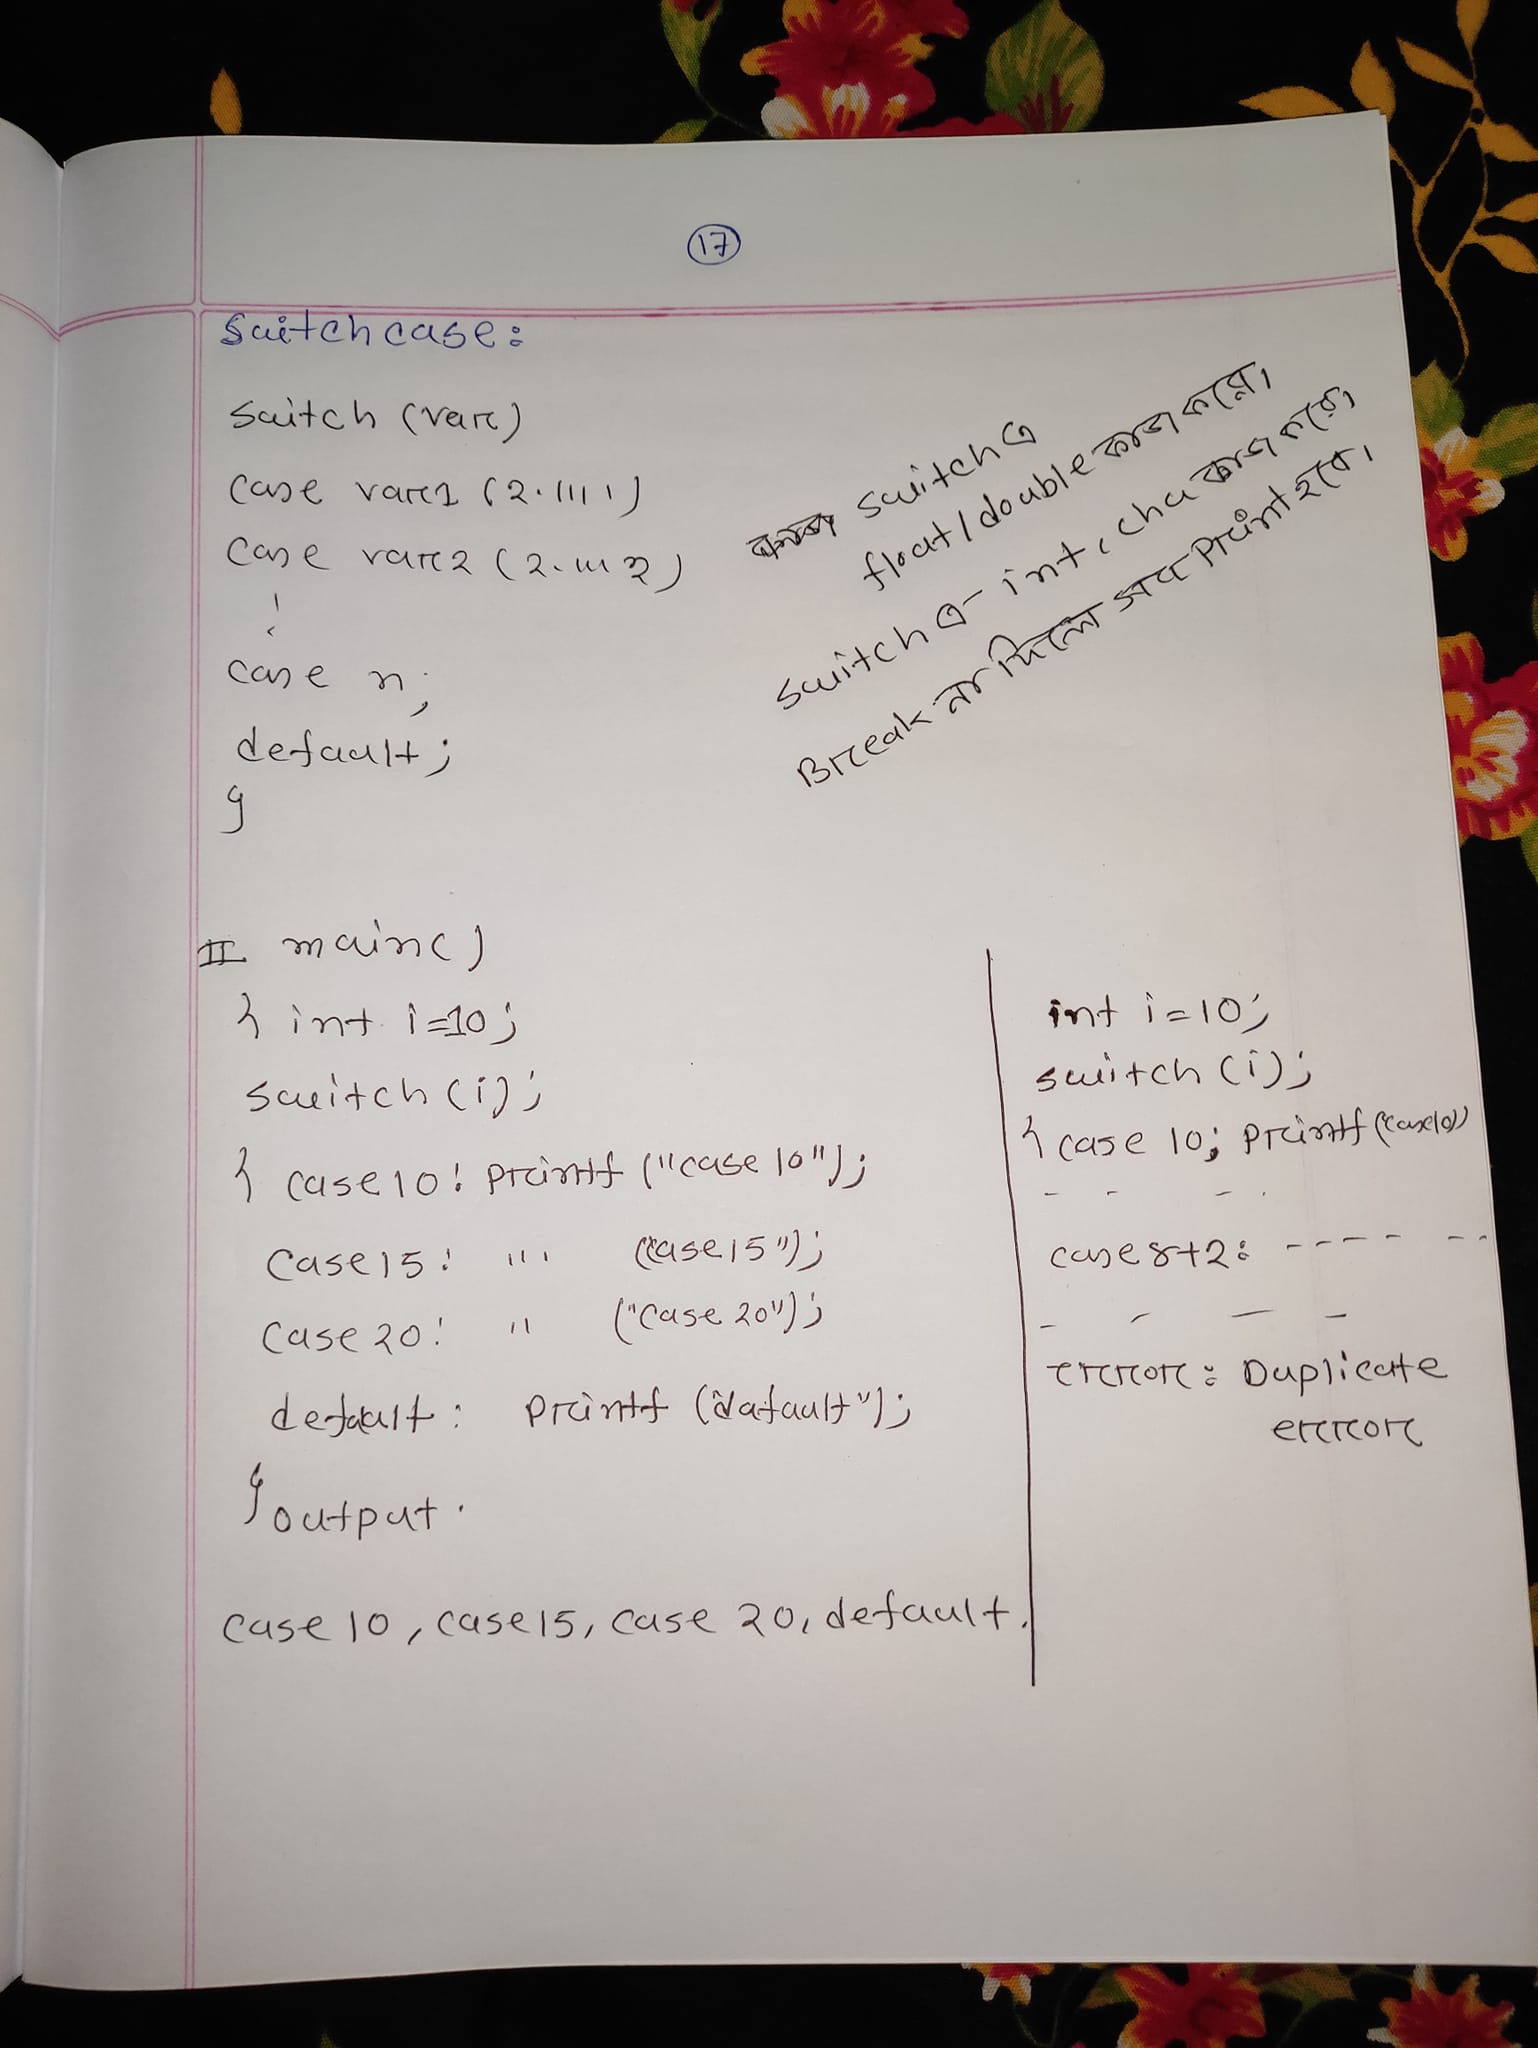 17
Switch case:
Switch (var)
case var1 (2.1111)
case var2 (2.1112)
case n;
default;
}
switch এ
float / double কাজ করে।
switch এ - int, cha কাজ করে,
Break না দিলে সব print হবে।
II main()
{ int i=10;
switch (i);
{ case 10: printf ("case 10");
case 15: " " ("case 15");
case 20: " ("case 20");
default: printf ("dafault");
} output.
case 10, case 15, case 20, default.
int i=10;
switch (i);
{ case 10; printf ("case10")
- - - -
case 8+2: - - - - - -
- - - -
error: Duplicate
error